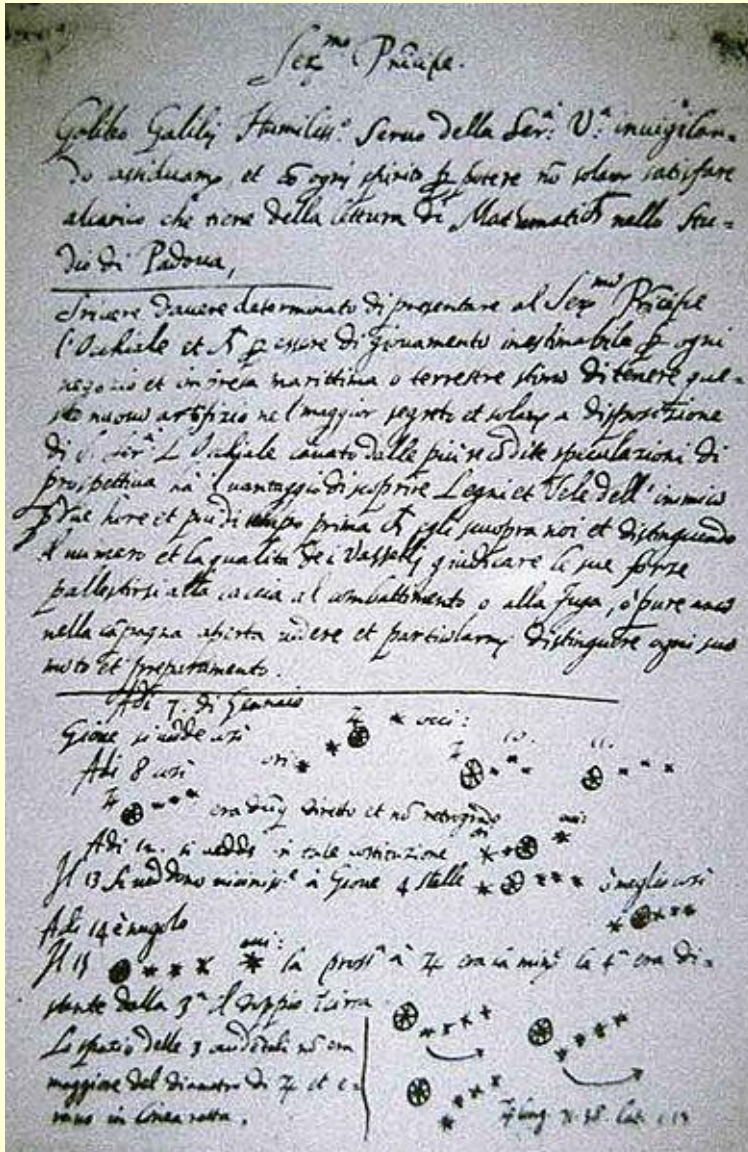 Ser.mo Principe.
Galileo Galilei Humiliss.o Servo della Ser.a V.a invigilan-
do assiduam.e, et cõ ogni spirito p potere nõ solam satisfare
alcarico che tiene della lettura di Mathematich nello Stu-
dio di Padova,
Scrivere davere determinato di presentare al Ser.mo Principe
l'Occhiale et p essere di giovamento inestimabile p ogni
negozio et impresa marittima o terrestre stimo di tenere que-
sto nuovo artifizio nel maggior segreto et solam a disposizione
di S. Ser.a L'Occhiale cavato dalle più recõdite speculazioni di
prospettiva hà il vantaggio di scoprire Legni et Vele dell'inimico
p due hore et più di tempo prima ch egli scuopra noi et distinguendo
il numero et la qualità dei Vasselli giudicare le sue forze
pallestirsi alla caccia al combattimento o alla fuga, ò pure anco
nella cãpagna aperta vedere et particolarm distinguere ogni suo
moto et preparamento.
Adi 7. di Gennaio
Gione si vedde così
occi:
ori
Adi 8 così
10. 11.
♃ era dũq diretto et nõ retrogrado
Adi 12. si vedde in tale costituzione
Il 13 si veddono vicinis.e à Gione 4 stelle ò meglio così
Adi 14 è nugolo
Il 15 la pross.a à ♃ era la min.e la 4.a era di-
stante dalla 3.a il doppio circa
Lo spatio delle 3 nõ era
maggiore del diametro di ♃ et e-
rano in linea retta.
♃ long. lat.